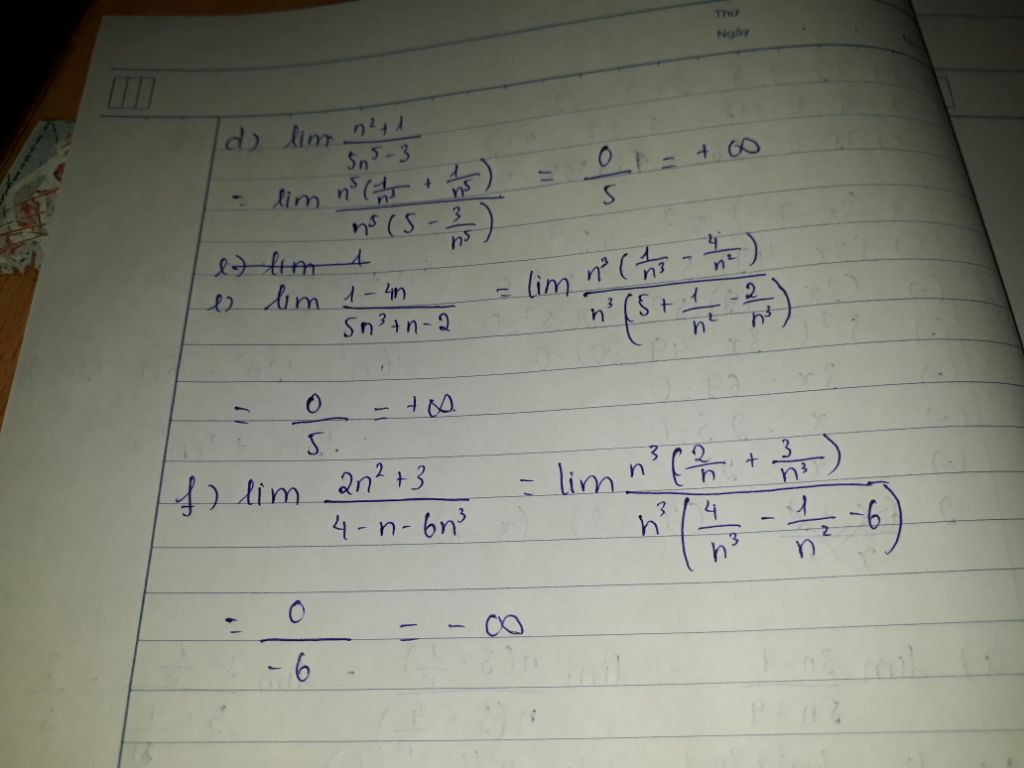 Thứ
Ngày
d) lim (n² + 1)/(5n⁵ - 3)
= lim (n⁵(1/n³ + 1/n⁵))/(n⁵(5 - 3/n⁵)) = 0/5 = +∞
e) lim 1
e) lim (1 - 4n)/(5n³ + n - 2) = lim (n³(1/n³ - 4/n²))/(n³(5 + 1/n² - 2/n³))
= 0/5 = +∞
f) lim (2n² + 3)/(4 - n - 6n³) = lim (n³(2/n + 3/n³))/(n³(4/n³ - 1/n² - 6))
= 0/-6 = -∞